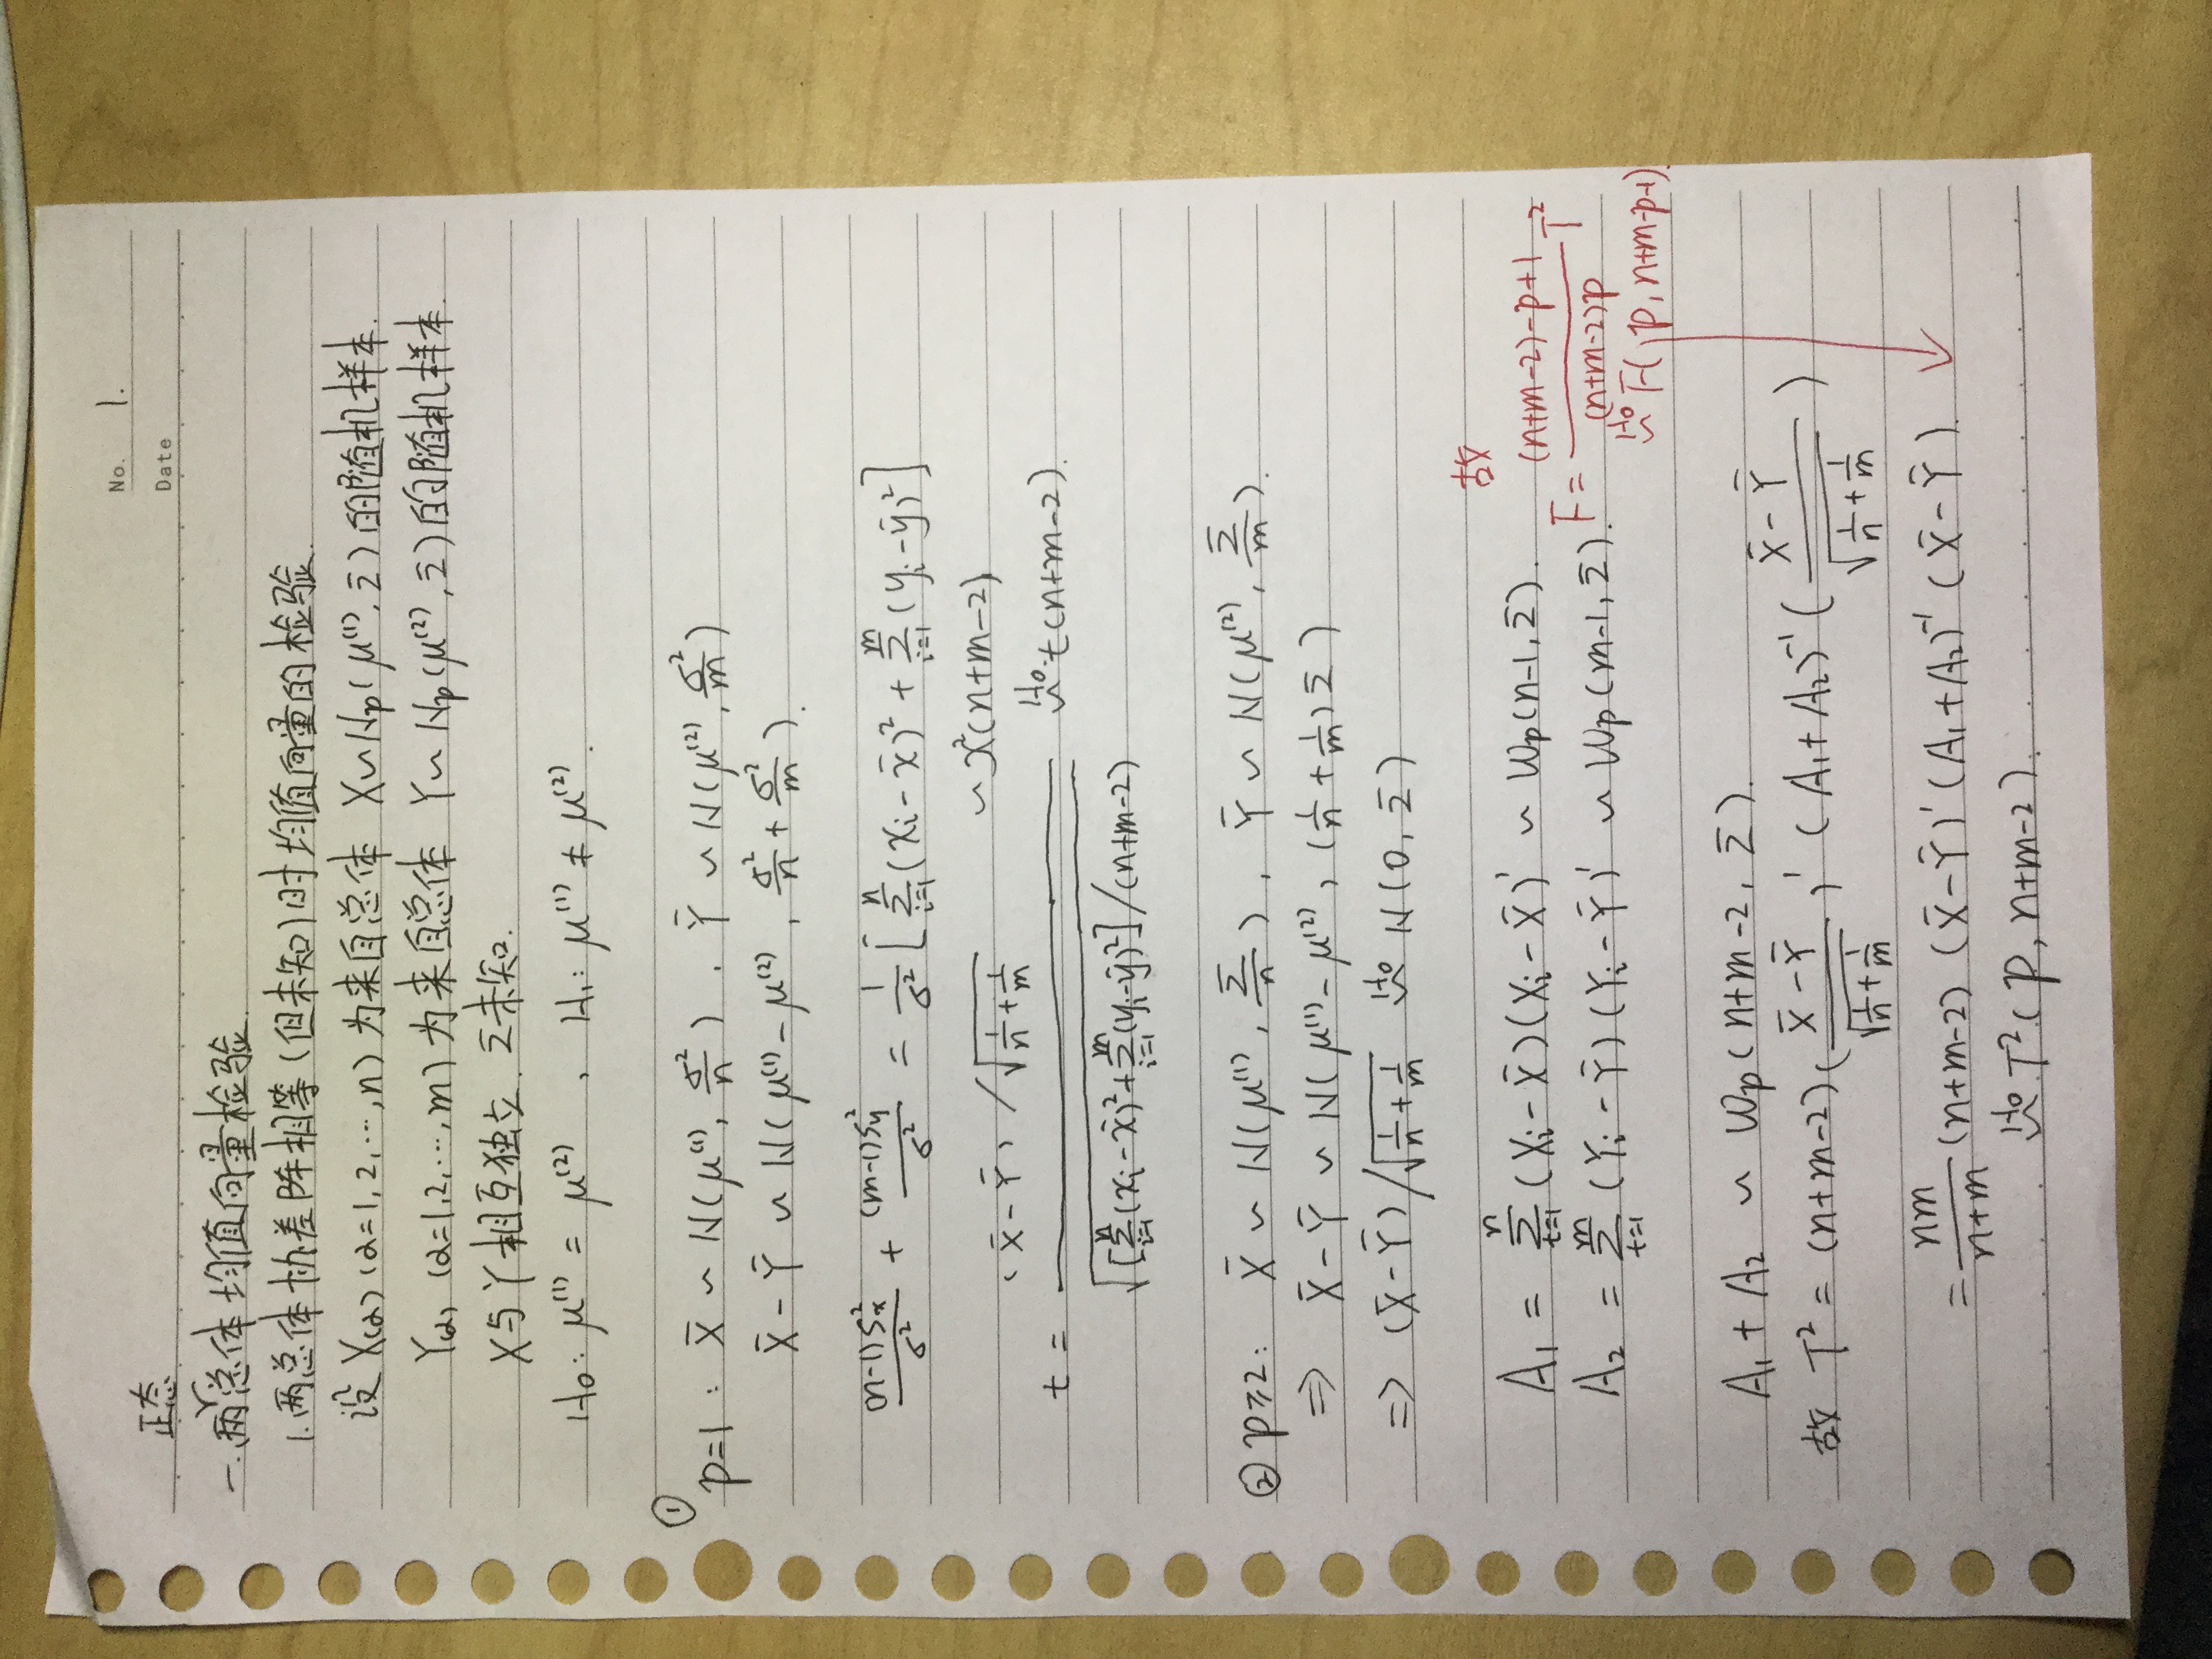 No. 1.
Date
正态
一.两总体均值向量检验.
1.两总体协差阵相等(但未知)时均值向量的检验.
设 X(α) (α=1,2,…,n) 为来自总体 X~Np(μ⁽¹⁾,Σ)的随机样本.
Y(α) (α=1,2,…,m) 为来自总体 Y~Np(μ⁽²⁾,Σ)的随机样本.
X与Y相互独立. Σ未知.
H₀: μ⁽¹⁾ = μ⁽²⁾ , H₁: μ⁽¹⁾ ≠ μ⁽²⁾.
① p=1: X̄ ~ N(μ⁽¹⁾, σ²/n) . Ȳ ~ N(μ⁽²⁾, σ²/m)
X̄ - Ȳ ~ N(μ⁽¹⁾ - μ⁽²⁾, σ²/n + σ²/m).
(n-1)Sx²/σ² + (m-1)Sy²/σ² = 1/σ² [ Σᵢ₌₁ⁿ (xᵢ - x̄)² + Σᵢ₌₁ᵐ (yᵢ - ȳ)² ]
~ χ²(n+m-2)
t = (X̄ - Ȳ) / √(1/n + 1/m) / √([Σᵢ₌₁ⁿ (xᵢ - x̄)² + Σᵢ₌₁ᵐ (yᵢ - ȳ)²] / (n+m-2)) H₀ ~ t(n+m-2).
② p≥2: X̄ ~ N(μ⁽¹⁾, Σ/n) , Ȳ ~ N(μ⁽²⁾, Σ/m).
⇒ X̄ - Ȳ ~ N(μ⁽¹⁾ - μ⁽²⁾, (1/n + 1/m)Σ)
⇒ (X̄ - Ȳ) / √(1/n + 1/m) H₀ ~ N(0, Σ)
A₁ = Σₜ₌₁ⁿ (Xᵢ - X̄)(Xᵢ - X̄)′ ~ Wp(n-1, Σ).
A₂ = Σₜ₌₁ᵐ (Yᵢ - Ȳ)(Yᵢ - Ȳ)′ ~ Wp(m-1, Σ).
故
F = ((n+m-2)-p+1) / ((n+m-2)p) T²
H₀ ~ F(p, n+m-p-1).
A₁ + A₂ ~ Wp(n+m-2, Σ).
故 T² = (n+m-2) ((X̄ - Ȳ) / √(1/n + 1/m))′ (A₁+A₂)⁻¹ ((X̄ - Ȳ) / √(1/n + 1/m))
= nm/(n+m) (n+m-2) (X̄ - Ȳ)′ (A₁+A₂)⁻¹ (X̄ - Ȳ).
H₀ ~ T²(p, n+m-2).